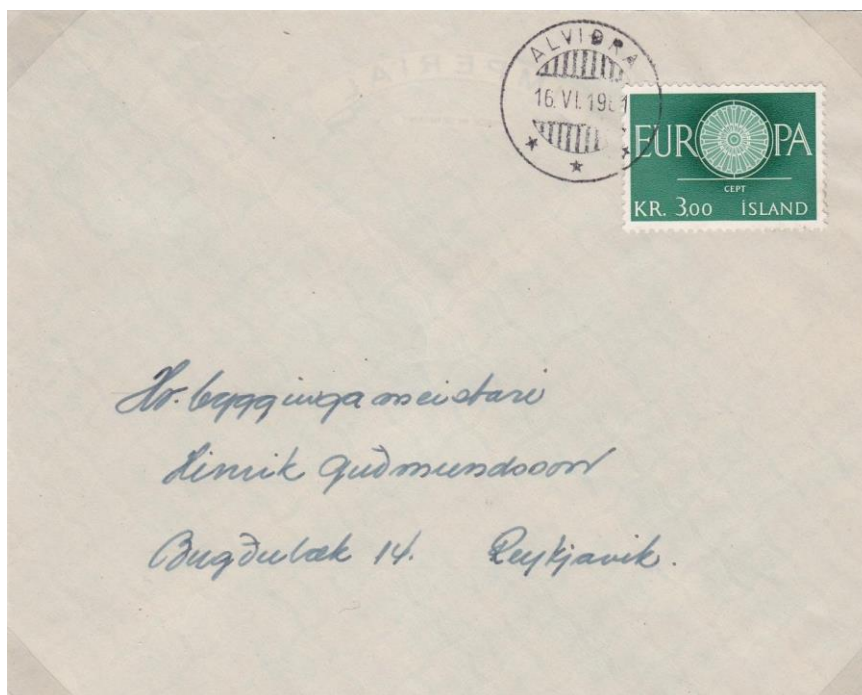 ALVIÐRA
16.VI.1961
EUROPA
CEPT
KR. 3,00 ÍSLAND
Hr. byggingameistari
Hinrik Guðmundsson
Bugðulæk 14. Reykjavik.